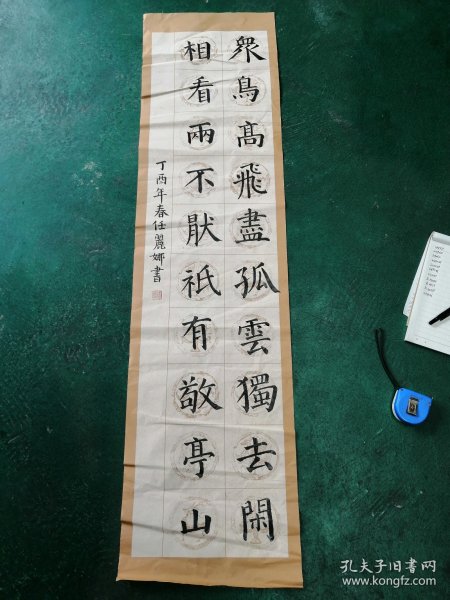 眾鳥高飛盡孤雲獨去閑
相看兩不猒祇有敬亭山
丁酉年春任麗娜書
孔夫子旧书网
www.kongfz.com